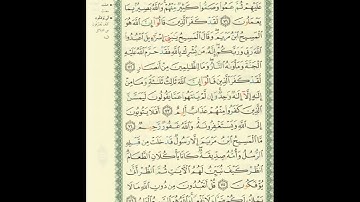 عَلَيْهِمْ ثُمَّ عَمُوا۟ وَصَمُّوا۟ كَثِيرٌ مِّنْهُمْ وَٱللَّهُ بَصِيرٌۢ بِمَا
يَعْمَلُونَ ٧١ لَقَدْ كَفَرَ ٱلَّذِينَ قَالُوٓا۟ إِنَّ ٱللَّهَ هُوَ
ٱلْمَسِيحُ ٱبْنُ مَرْيَمَ وَقَالَ ٱلْمَسِيحُ يَٰبَنِىٓ إِسْرَٰٓءِيلَ ٱعْبُدُوا۟
ٱللَّهَ رَبِّى وَرَبَّكُمْ إِنَّهُۥ مَن يُشْرِكْ بِٱللَّهِ فَقَدْ حَرَّمَ ٱللَّهُ عَلَيْهِ
ٱلْجَنَّةَ وَمَأْوَىٰهُ ٱلنَّارُ وَمَا لِلظَّٰلِمِينَ مِنْ أَنصَارٍ ٧٢
لَّقَدْ كَفَرَ ٱلَّذِينَ قَالُوٓا۟ إِنَّ ٱللَّهَ ثَالِثُ ثَلَٰثَةٍ وَمَا مِنْ
إِلَٰهٍ إِلَّآ إِلَٰهٌ وَٰحِدٌ وَإِن لَّمْ يَنتَهُوا۟ عَمَّا يَقُولُونَ لَيَمَسَّنَّ
ٱلَّذِينَ كَفَرُوا۟ مِنْهُمْ عَذَابٌ أَلِيمٌ ٧٣ أَفَلَا يَتُوبُونَ
إِلَى ٱللَّهِ وَيَسْتَغْفِرُونَهُۥ وَٱللَّهُ غَفُورٌ رَّحِيمٌ ٧٤
مَّا ٱلْمَسِيحُ ٱبْنُ مَرْيَمَ إِلَّا رَسُولٌ قَدْ خَلَتْ مِن قَبْلِهِ
ٱلرُّسُلُ وَأُمُّهُۥ صِدِّيقَةٌ كَانَا يَأْكُلَانِ ٱلطَّعَامَ
ٱنظُرْ كَيْفَ نُبَيِّنُ لَهُمُ ٱلْءَايَٰتِ ثُمَّ ٱنظُرْ أَنَّىٰ
يُؤْفَكُونَ ٧٥ قُلْ أَتَعْبُدُونَ مِن دُونِ ٱللَّهِ مَا لَا